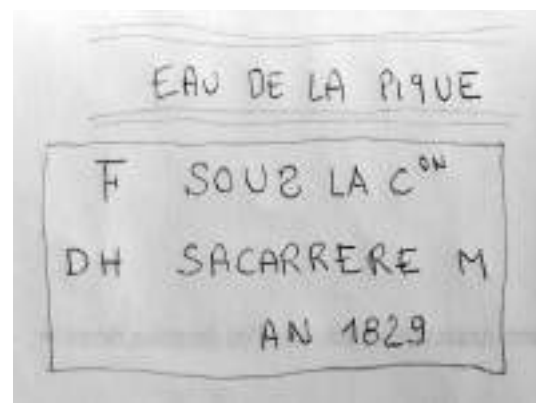 EAU DE LA PIQUE
F SOUS LA CON
DH SACARRERE M
AN 1829